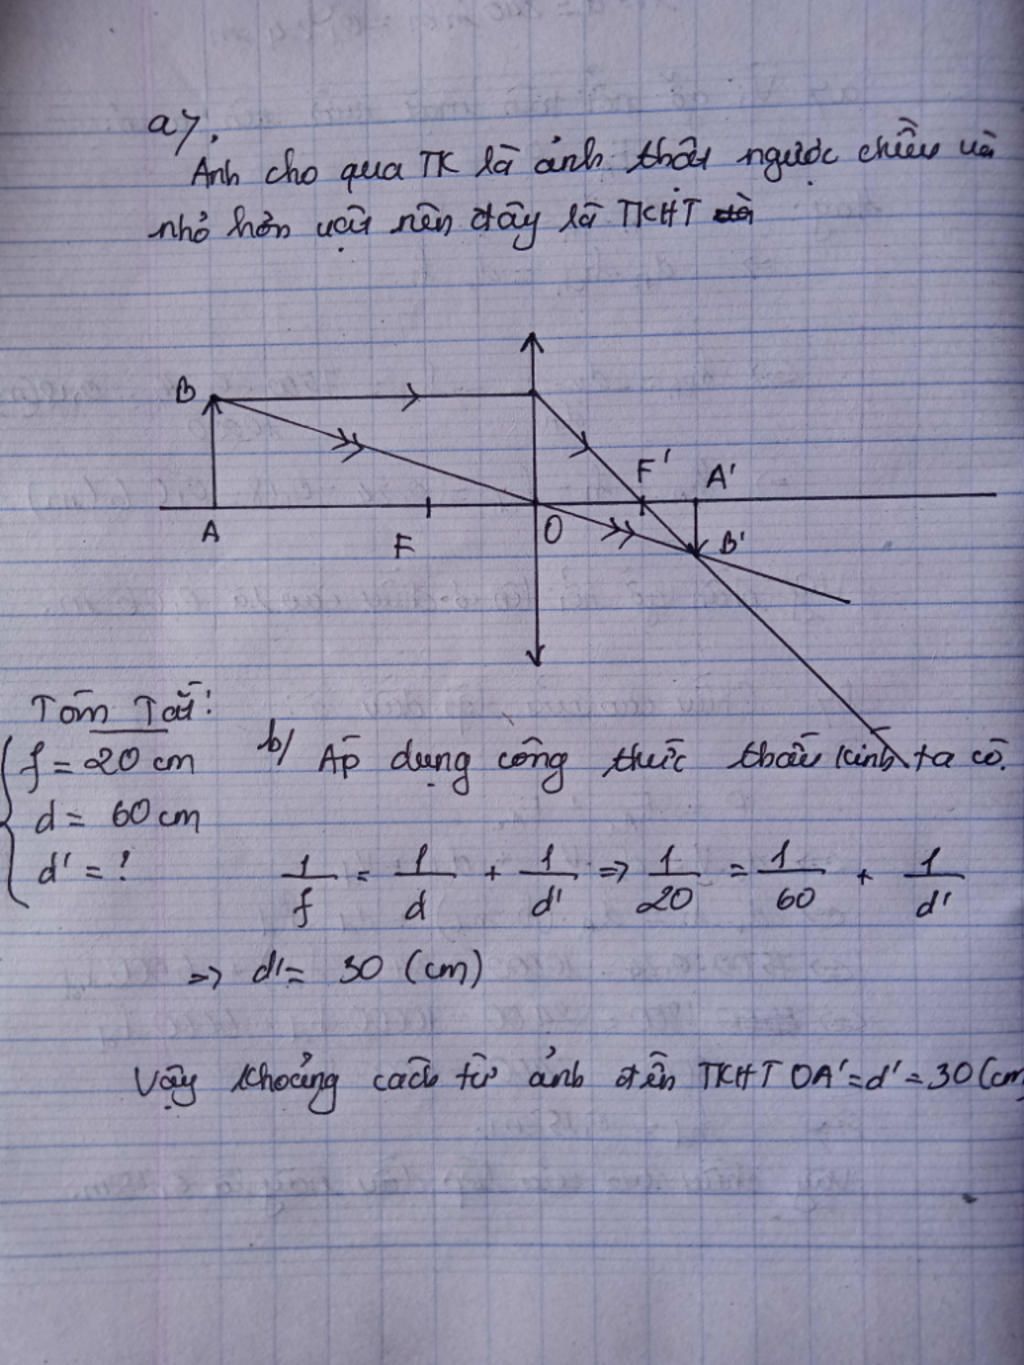 a).
Ảnh cho qua TK là ảnh thật ngược chiều và
nhỏ hơn vật nên đây là TKHT
B
F'
A'
A
F
O
B'
Tóm Tắt:
f = 20 cm
d = 60 cm
d' = ?
b/ Áp dụng công thức thấu kính ta có.
1/f = 1/d + 1/d' => 1/20 = 1/60 + 1/d'
=> d' = 30 (cm)
Vậy khoảng cách từ ảnh đến TKHT OA' = d' = 30 (cm